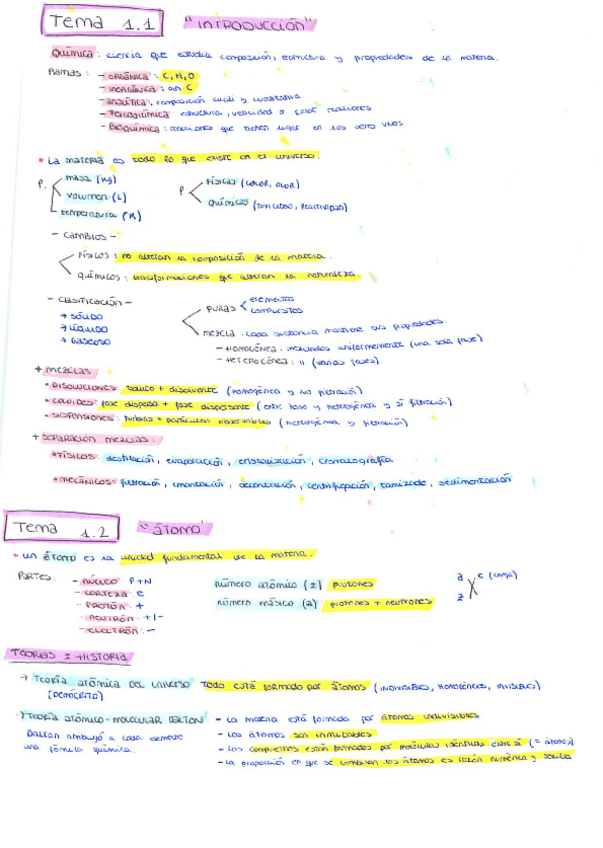 Tema 1.1 "INTRODUCCIÓN"
QUÍMICA: ciencia que estudia composición, estructura y propiedades de la materia.
Ramas: - ORGÁNICA: C, H, O
- INORGÁNICA: sin C
- ANALÍTICA: composición cuali y cuantitativa
- TERMOQUÍMICA: estructura, velocidad o calor reacciones
- BIOQUÍMICA: reacciones que tienen lugar en los seres vivos
• LA MATERIA es todo lo que existe en el universo.
P. masa (Kg)
volumen (L)
temperatura (K)
P FÍSICAS (COLOR, OLOR)
QUÍMICAS (TOXICIDAD, REACTIVIDAD)
- CAMBIOS -
FÍSICOS: no alteran la composición de la materia.
QUÍMICOS: transformaciones que alteran la naturaleza.
- CLASIFICACIÓN -
→ SÓLIDO
→ LÍQUIDO
→ GASEOSO
PURAS elementos
compuestos
MEZCLA: cada sustancia mantiene sus propiedades.
- HOMOGÉNEA: mezclados uniformemente (una sola fase)
- HETEROGÉNEA: 11 (varias fases)
+ MEZCLAS
• DISOLUCIONES soluto + disolvente (homogénea y NO filtración)
• COLOIDES fase dispersa + fase dispersante (entre homo y heterogénea y sí filtración)
• SUSPENSIONES: turbias + partículas observables (heterogénea y filtración)
+ SEPARACIÓN MEZCLAS:
• FÍSICOS: destilación, evaporación, cristalización, cromatografía
• MECÁNICOS: filtración, decantación, centrifugación, tamizado, sedimentación
Tema 1.2 "ÁTOMO"
• UN ÁTOMO es la unidad fundamental de la materia.
PARTES: - NÚCLEO P+N
- CORTEZA e
- PROTÓN +
- NEUTRÓN +/-
- ELECTRÓN -
número atómico (z) protones
número másico (a) protones + neutrones
a c (carga)
X
z
TEORÍAS = HISTORIA
→ TEORÍA ATÓMICA DEL UNIVERSO TODO ESTÁ formado por ÁTOMOS (INDIVISIBLES, HOMOGÉNEOS, INVISIBLES)
(DEMÓCRITO)
→ TEORÍA ATÓMICO-MOLECULAR DALTON - La materia está formada por átomos indivisibles
Dalton atribuyó a cada elemento - Los átomos son inmutables
una fórmula química. - Los compuestos están formados por moléculas idénticas entre sí (= átomos)
- La proporción en que se combinan los átomos es razón numérica y sencilla